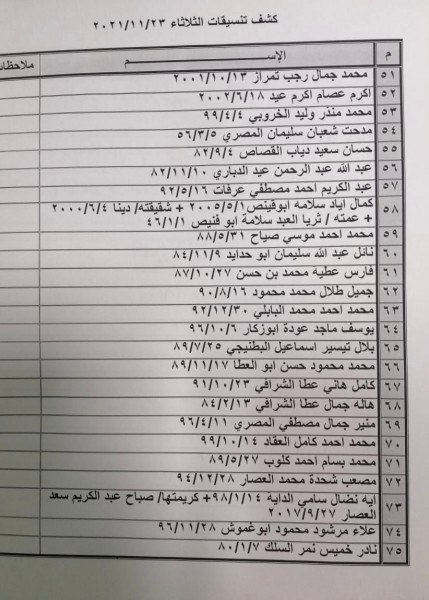 كشف تنسيقات الثلاثاء ٢٠٢١/١١/٢٣
م الإســـــم ملاحظات
٥١ محمد جمال رجب تمراز ٢٠٠١/١٠/١٣
٥٢ اكرم عصام اكرم عيد ٢٠٠٢/٦/١٨
٥٣ محمد منذر وليد الخروبي ٩٩/٤/٤
٥٤ مدحت شعبان سليمان المصري ٥٦/٣/٥
٥٥ حسان سعيد دياب القصاص ٨٢/٩/٤
٥٦ عبد الله عبد الرحمن عيد الدباري ٨٢/١١/١٠
٥٧ عبد الكريم احمد مصطفي عرفات ٩٢/٥/١٦
٥٨ كمال اياد سلامه ابوقينص ٢٠٠٥/٥/١ + شقيقته/ دينا ٢٠٠٠/٦/٤
+ عمته / ثريا العبد سلامة ابو قنيص ٤٦/١/١
٥٩ محمد احمد موسي صباح ٨٨/٥/٣١
٦٠ نائل عبد الله سليمان ابو حدايد ٨٤/١١/٩
٦١ فارس عطيه محمد بن حسن ٨٧/١٠/٢٧
٦٢ جميل طلال محمد محمود ٩٠/٨/١٦
٦٣ محمد احمد محمد البابلي ٩٢/١٢/٣٠
٦٤ يوسف ماجد عودة ابوزكار ٩٦/١٠/٦
٦٥ بلال تيسير اسماعيل البطنيجي ٨٩/٧/٢٥
٦٦ محمد محمود حسن ابو العطا ٨٩/١١/١٧
٦٧ كامل هاني عطا الشرافي ٩١/١٠/٢٣
٦٨ هاله جمال عطا الشرافي ٨٤/٢/١٣
٦٩ منير جمال مصطفي المصري ٩٦/٤/١١
٧٠ محمد احمد كامل العقاد ٩٩/١٠/١٤
٧١ محمد بسام احمد كلوب ٨٩/٥/٢٧
٧٢ مصعب شحدة محمد العصار ٩٤/١٢/٢٨
٧٣ ايه نضال سامي الدايه ٩٨/١/١٤+ كريمتها/ صباح عبد الكريم سعد
العصار ٢٠١٧/٩/٢٧
٧٤ علاء مرشود محمود ابوغموش ٩٦/١١/٢٨
٧٥ نادر خميس نمر السلك ٨٠/١/٧